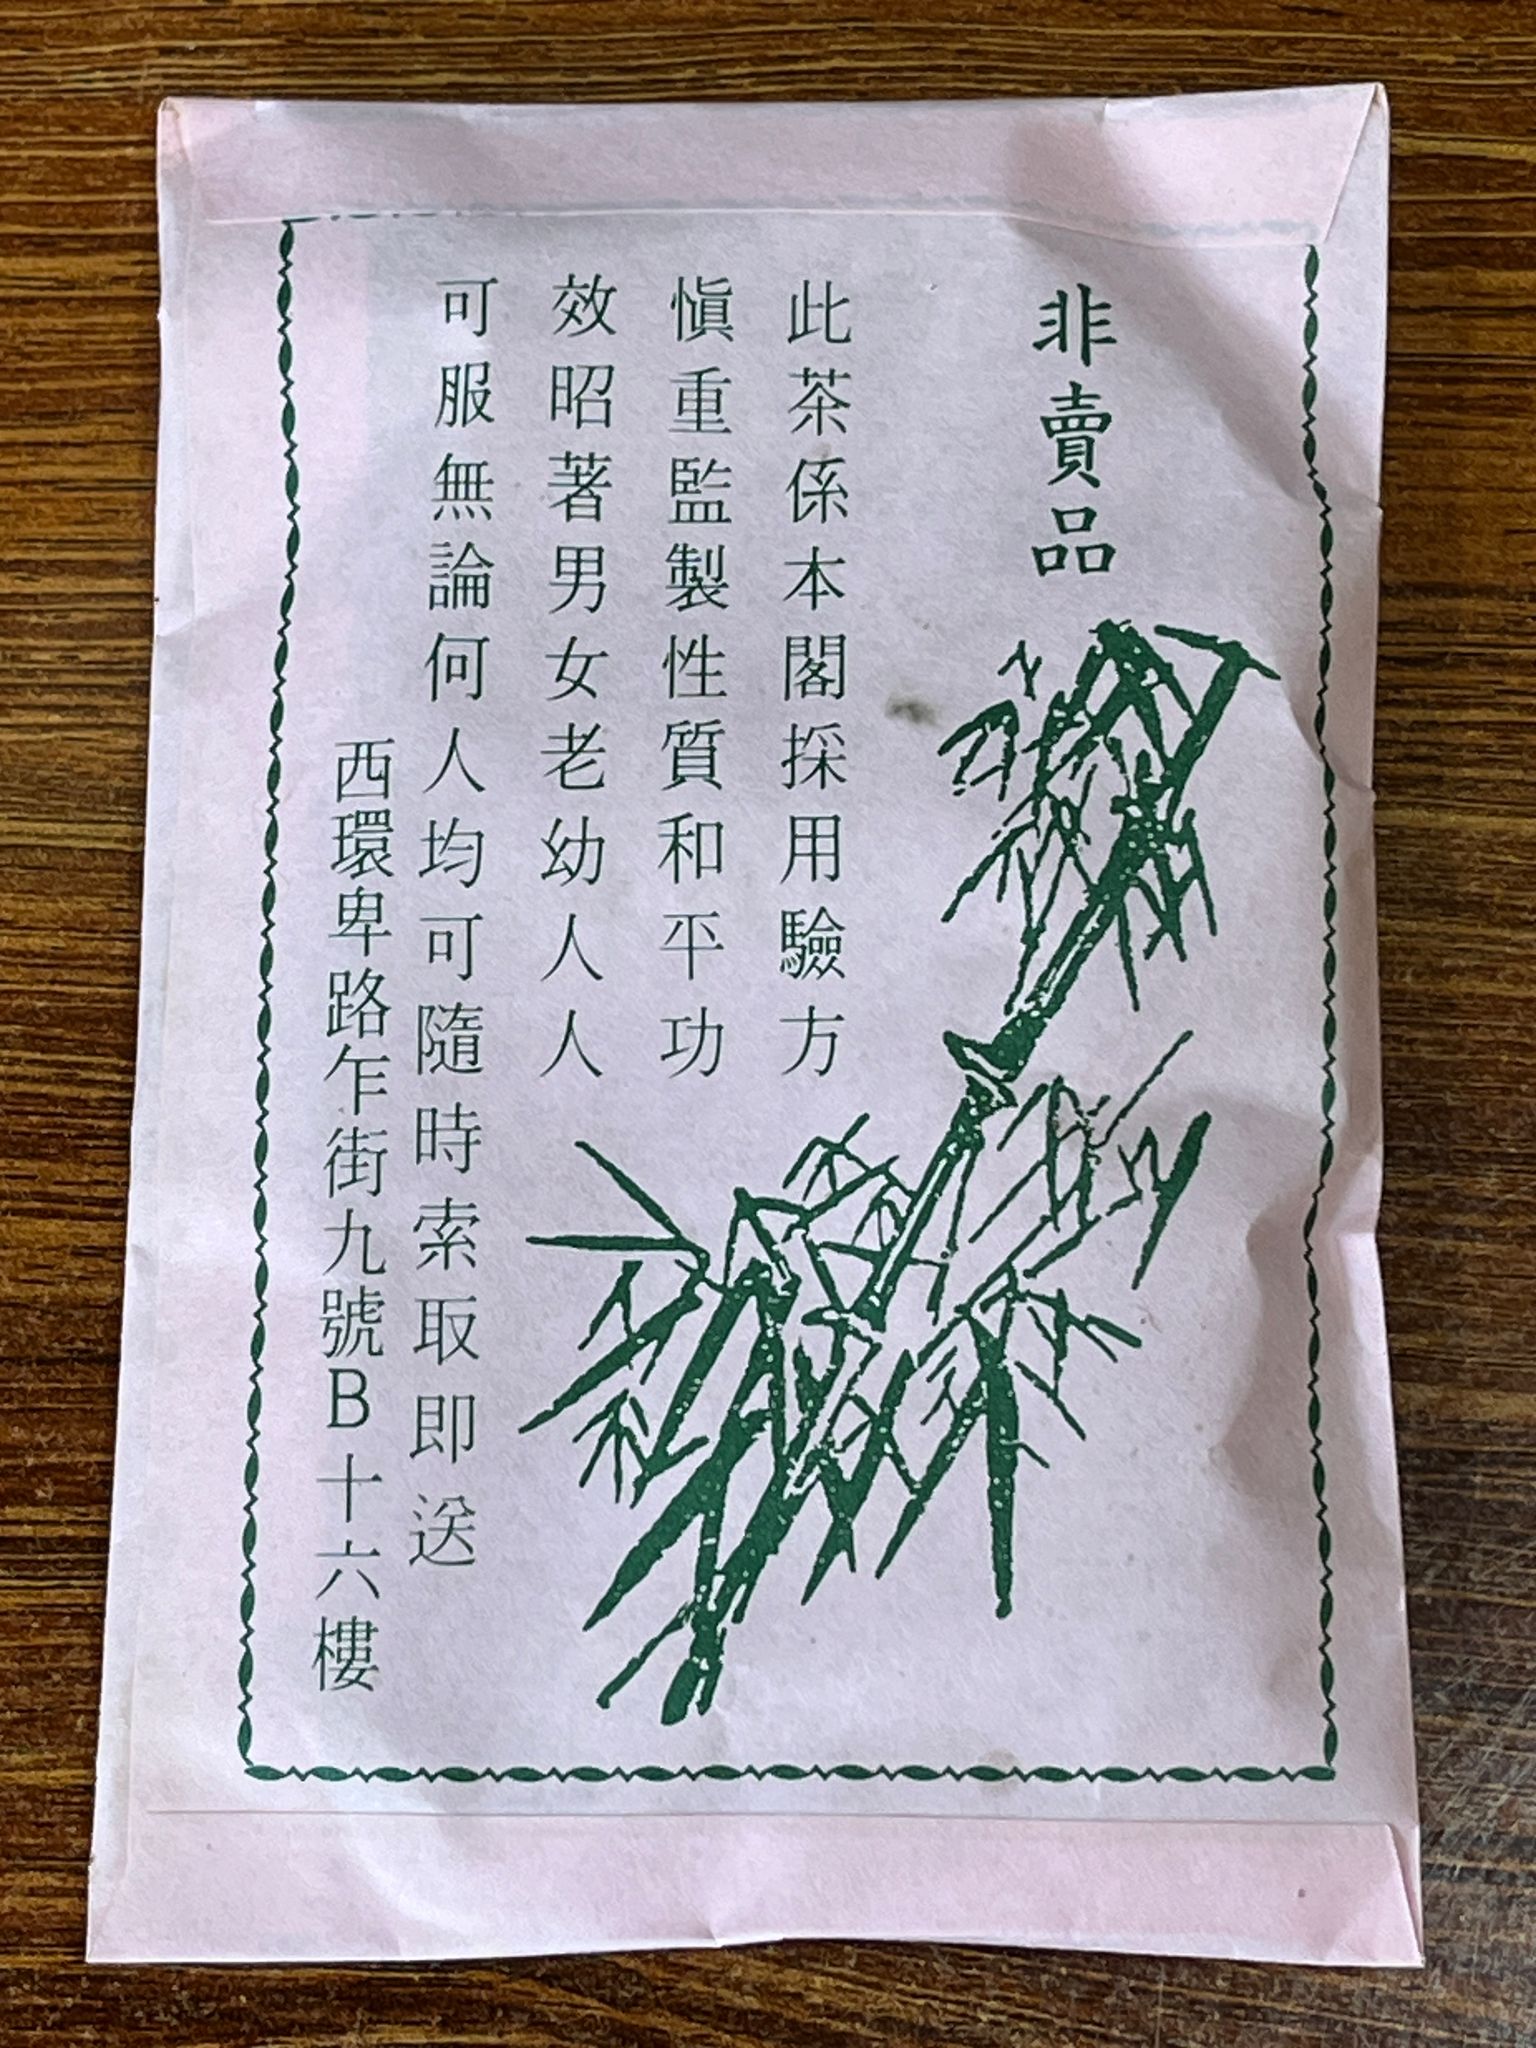 非賣品
此茶係本閣採用驗方
慎重監製性質和平功
效昭著男女老幼人人
可服無論何人均可隨時索取即送
西環卑路乍街九號B十六樓